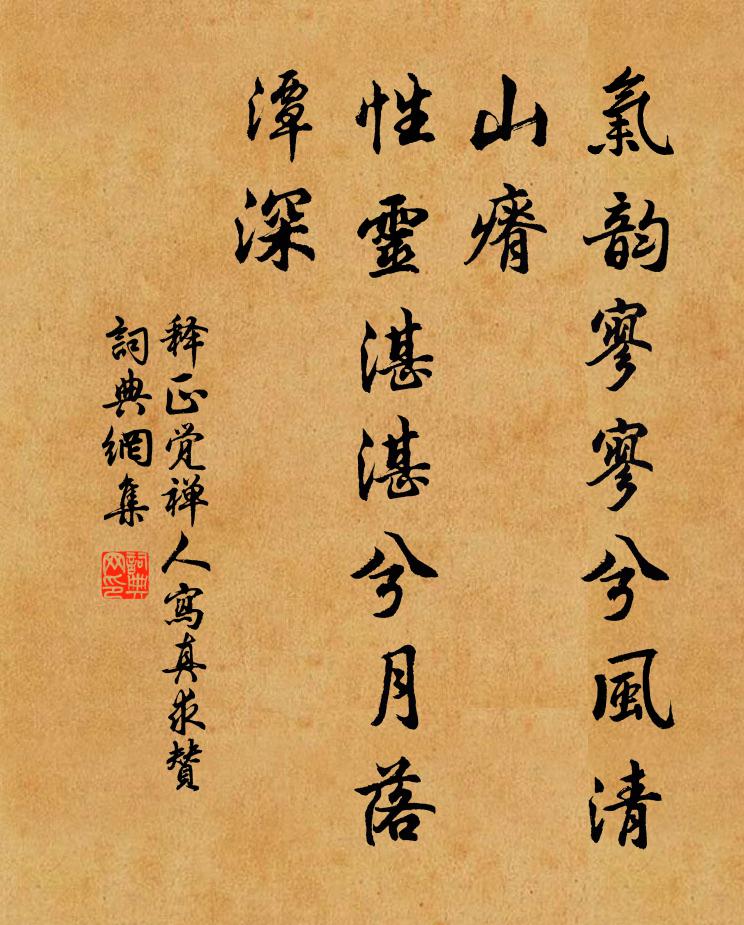 氣韵寥寥兮風清
山瘠
性靈湛湛兮月落
潭深
释正觉禅人寫真求賛
詞典網集
詞典网印